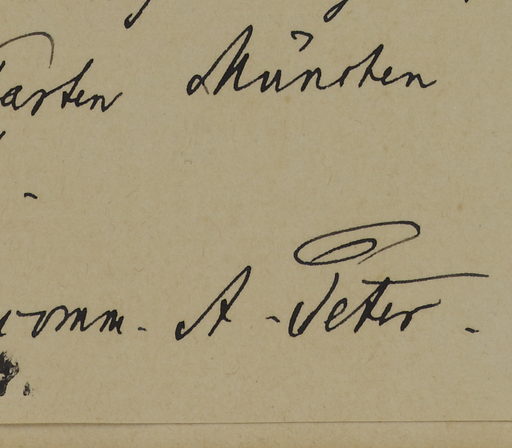 Garten München
comm. A. Peter.